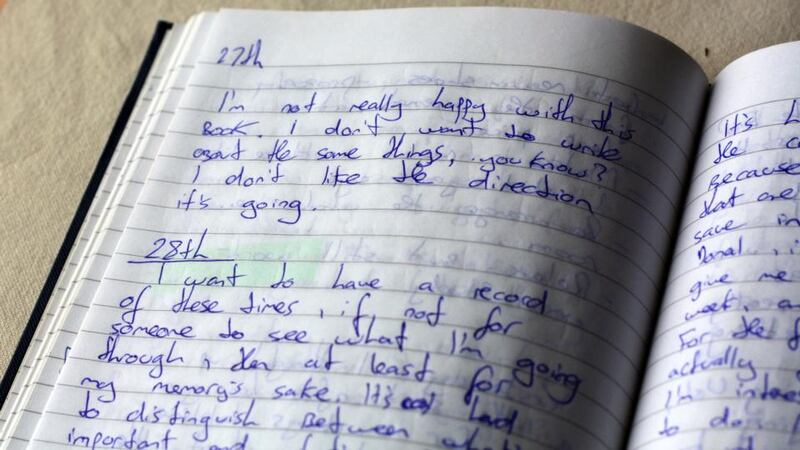 27th
I'm not really happy with this
BOOK. I don't want to write
about the same things, you know?
I don't like the direction
it's going.
28th
I want to have a record
of these times, if not for
someone to see what I'm going
through, then at least for
my memory's sake. It's
to distinguish Between
important and
It's
the
Because
that are
save in
Donal, i
give me
week, an
For the f
actually
I'm
to do